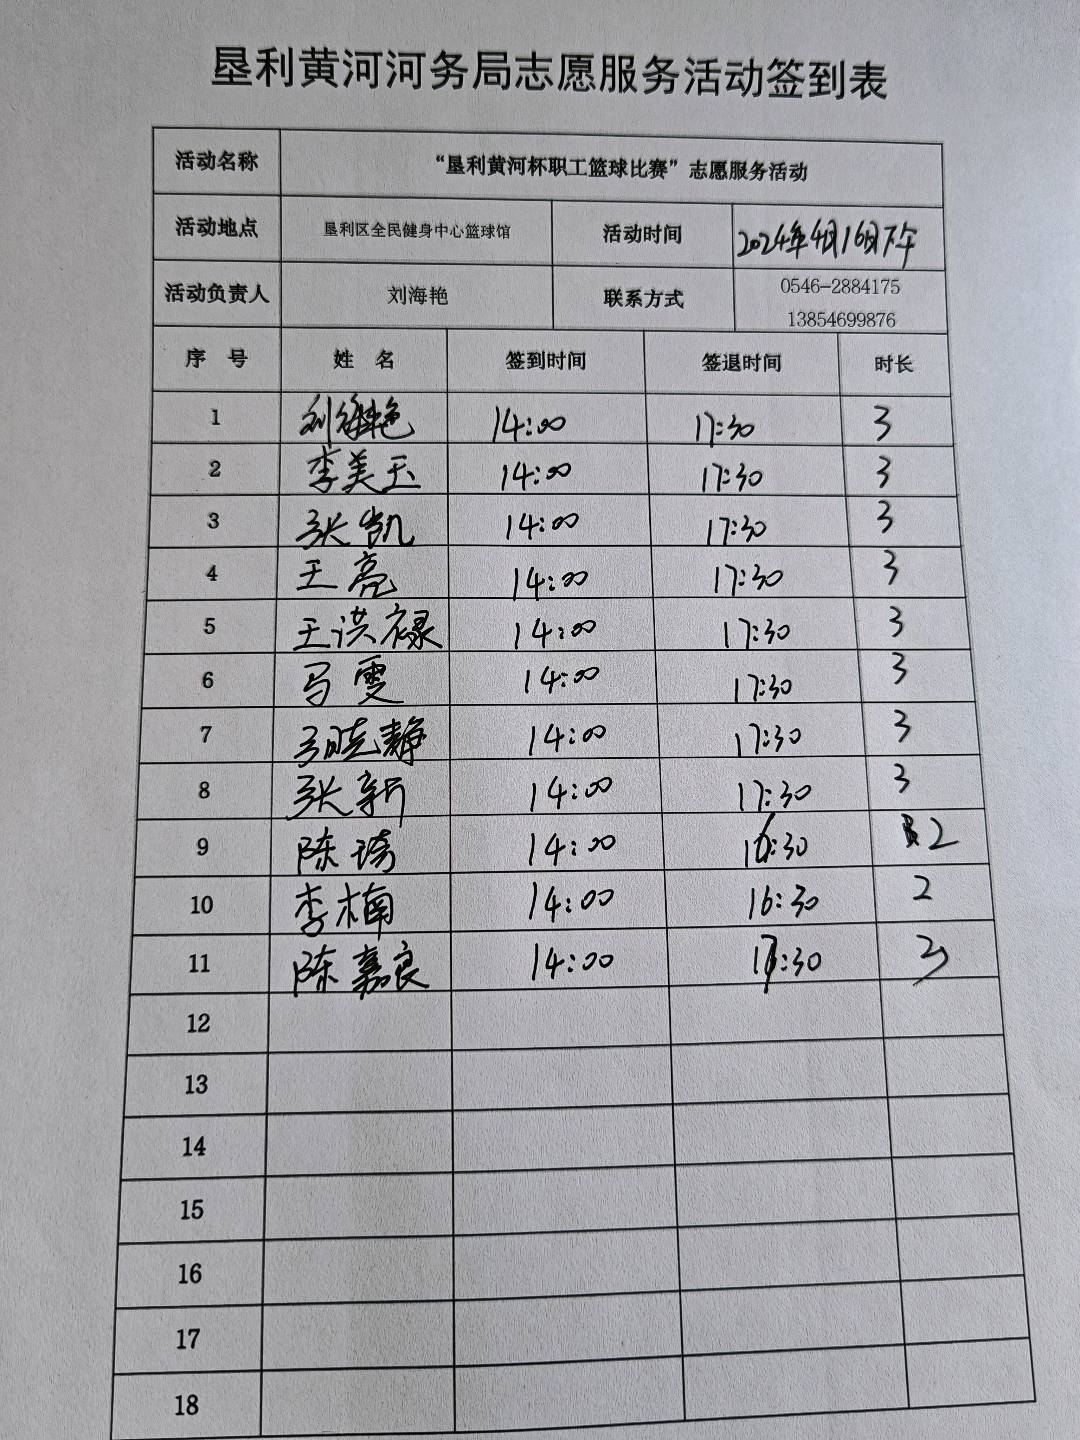 垦利黄河河务局志愿服务活动签到表
活动名称 “垦利黄河杯职工篮球比赛”志愿服务活动
活动地点 垦利区全民健身中心篮球馆 活动时间 2024年4月16日下午
活动负责人 刘海艳 联系方式 0546-2884175
13854699876
序 号 姓 名 签到时间 签退时间 时长
1 刘海艳 14:00 17:30 3
2 李美玉 14:00 17:30 3
3 张凯 14:00 17:30 3
4 王亮 14:00 17:30 3
5 王洪禄 14:00 17:30 3
6 马雯 14:00 17:30 3
7 晓静 14:00 17:30 3
8 张新 14:00 17:30 3
9 陈琦 14:00 16:30 2
10 李楠 14:00 16:30 2
11 陈嘉良 14:00 17:30 3
12
13
14
15
16
17
18